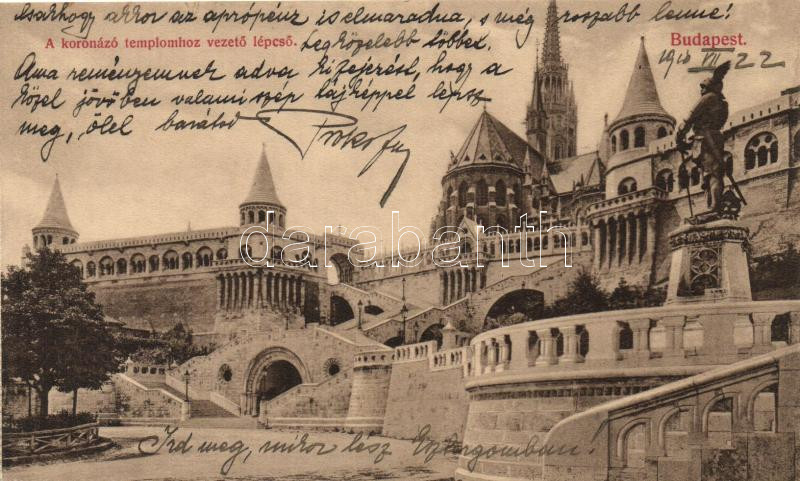 csakhogy akkor az aprópénz is elmaradna, s még rosszabb lenne!
A koronázó templomhoz vezető lépcső.
Legközelebb többet.
Budapest.
1910 VII 22
Ama reményemnek adva kifejezést, hogy a
közel jövőben valami szép tájképpel lepsz
meg, ölel barátod
darabanth
Ird meg, mikor lész Esztergomban.